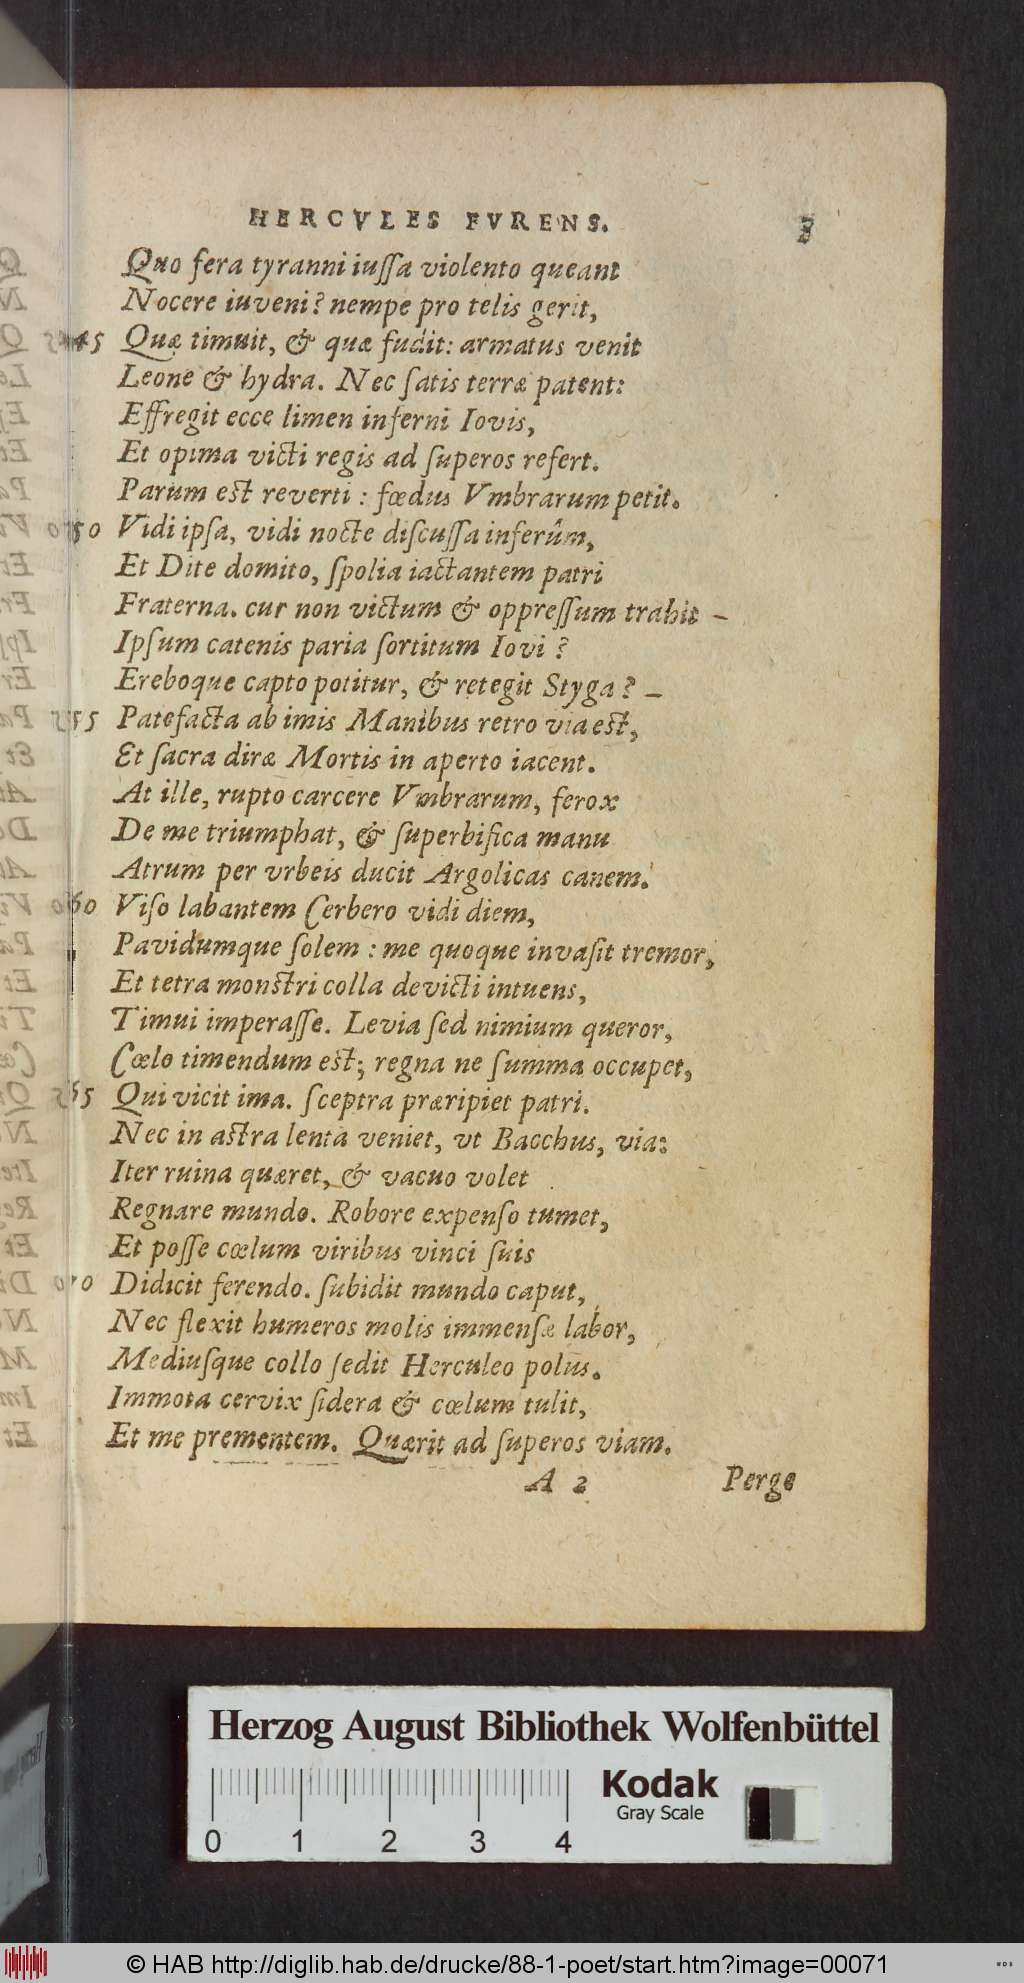 HERCVLES FVRENS. 3
Quo fera tyranni iuſſa violento queant
Nocere iuveni? nempe pro telis gerit,
45 Quæ timuit, & quæ fudit: armatus venit
Leone & hydra. Nec ſatis terræ patent:
Effregit ecce limen inferni Iovis,
Et opima victi regis ad ſuperos refert.
Parum est reverti : fœdus Vmbrarum petit.
50 Vidi ipſa, vidi nocte diſcuſſa inferûm,
Et Dite domito, ſpolia iactantem patri
Fraterna. cur non victum & oppreſſum trahit
Ipſum catenis paria ſortitum Iovi ?
Ereboque capto potitur, & retegit Styga ?
55 Patefacta ab imis Manibus retro via est,
Et ſacra diræ Mortis in aperto iacent.
At ille, rupto carcere Vmbrarum, ferox
De me triumphat, & ſuperbifica manu
Atrum per vrbeis ducit Argolicas canem.
60 Viſo labantem Cerbero vidi diem,
Pavidumque ſolem : me quoque invaſit tremor,
Et tetra monstri colla devicti intuens,
Timui imperaſſe. Levia ſed nimium queror,
Cœlo timendum est; regna ne ſumma occupet,
65 Qui vicit ima. ſceptra præripiet patri.
Nec in astra lenta veniet, vt Bacchus, via:
Iter ruina quæret, & vacuo volet
Regnare mundo. Robore expenſo tumet,
Et poſſe cœlum viribus vinci ſuis
70 Didicit ferendo. ſubidit mundo caput,
Nec flexit humeros molis immenſæ labor,
Mediuſque collo ſedit Herculeo polus.
Immota cervix ſidera & cœlum tulit,
Et me prementem. Quærit ad ſuperos viam.
A 2 Perge
Herzog August Bibliothek Wolfenbüttel
Kodak
Gray Scale
0 1 2 3 4
© HAB http://diglib.hab.de/drucke/88-1-poet/start.htm?image=00071